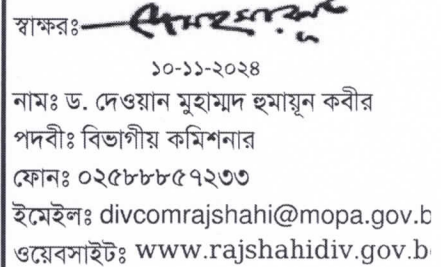 স্বাক্ষরঃ
১০-১১-২০২৪
নামঃ ড. দেওয়ান মুহাম্মদ হুমায়ূন কবীর
পদবীঃ বিভাগীয় কমিশনার
ফোনঃ ০২৫৮৮৮৫৭২৩৩
ইমেইলঃ divcomrajshahi@mopa.gov.b
ওয়েবসাইটঃ www.rajshahidiv.gov.b